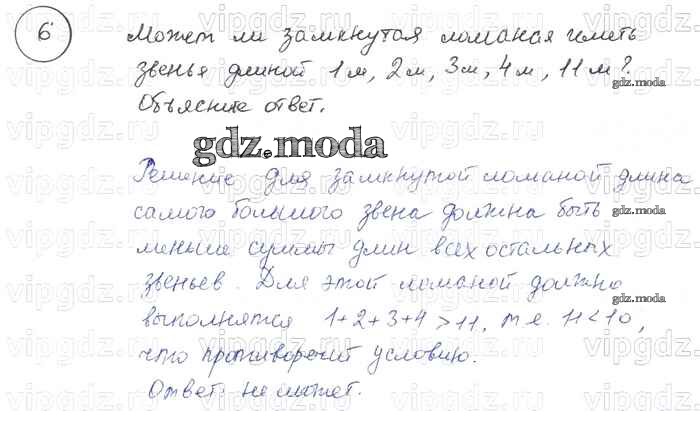 6 Может ли замкнутая ломаная иметь
звенья длиной 1м, 2м, 3м, 4м, 11м?
Объясните ответ.
gdz.moda
Решение для замкнутой ломаной длина
самого большого звена должна быть
меньше суммы длин всех остальных
звеньев. Для этой ломаной должно
выполнятся 1+2+3+4>11, т.е. 11<10,
что противоречит условию.
Ответ: не может.